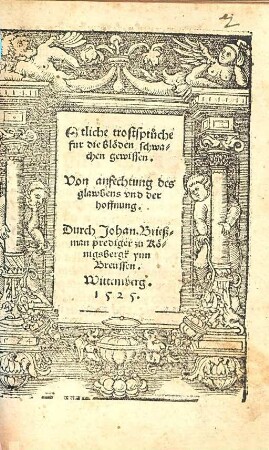 Etliche trostsprüche
fur die blöden schwa-
chen gewissen.
Von anfechtung des
glawbens vnd der
hoffnung.
Durch Johan. Brieß-
man prediger zu Kö-
nigsbergk ynn
Preussen.
Wittemberg.
1525.